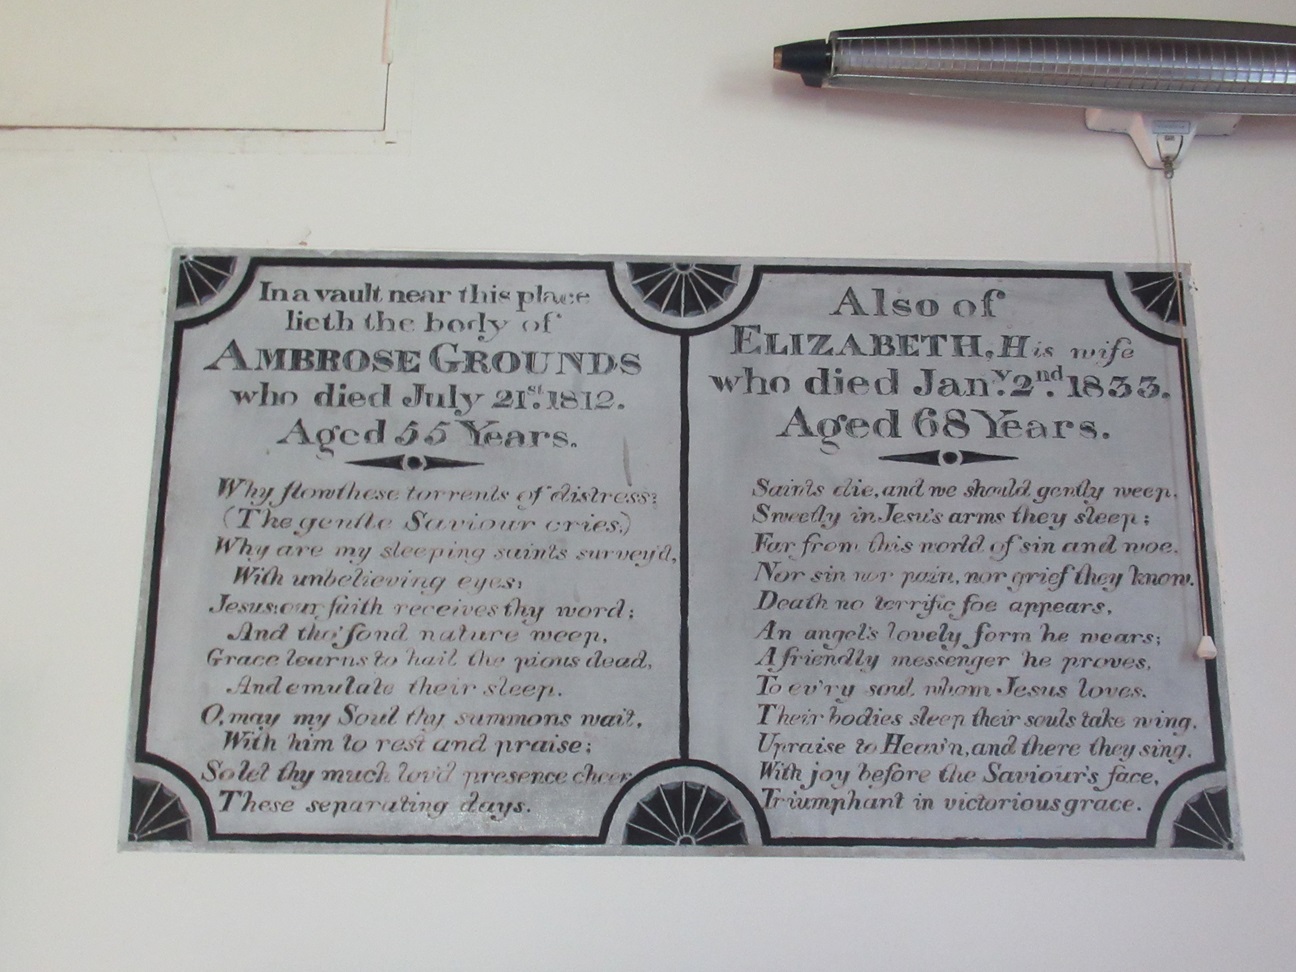 In a vault near this place
lieth the body of
AMBROSE GROUNDS
who died July 21st. 1812.
Aged 55 Years.
Why flow these torrents of distress?
(The gentle Saviour cries.)
Why are my sleeping saints survey'd,
With unbelieving eyes;
Jesus: our faith receives thy word;
And tho' fond nature weep,
Grace learns to hail the pious dead,
And emulate their sleep.
O, may my Soul thy summons wait,
With him to rest and praise;
So let thy much lov'd presence cheer
These separating days.
Also of
ELIZABETH, His wife
who died Jany. 2nd. 1833.
Aged 68 Years.
Saints die, and we should gently weep,
Sweetly in Jesu's arms they sleep;
Far from this world of sin and woe,
Nor sin nor pain, nor grief they know.
Death no terrific foe appears,
An angel's lovely form he wears;
A friendly messenger he proves,
To ev'ry soul whom Jesus loves.
Their bodies sleep their souls take wing,
Upraise to Heav'n, and there they sing.
With joy before the Saviour's face,
Triumphant in victorious grace.